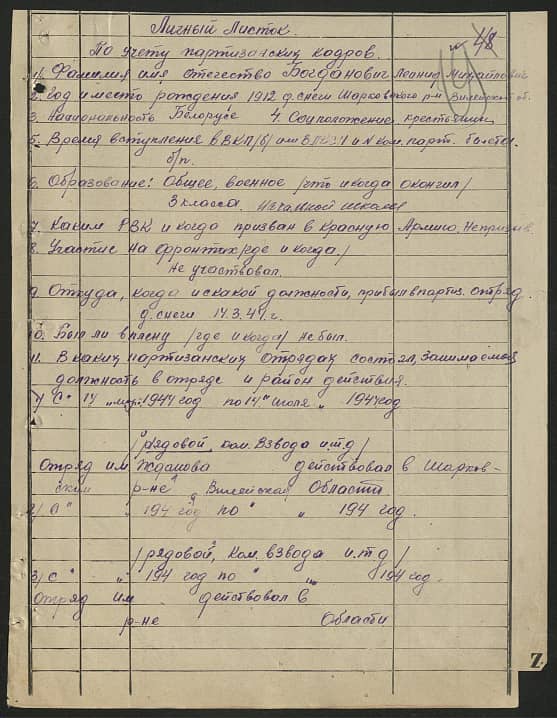 Личный Листок.
По учету партизанских кадров.
№ 48
1. Фамилия имя отечество Богданович Леонид Михайлович
2. Год и место рождения 1912 д. Снеги Шарковского р-н Вилейской об.
3. Национальность Белорусс 4. Соцположение, крестьянин
5. Время вступления в ВКП/б/ или ВЛКСМ и № ком. парт. билета.
б/п.
6. Образование: Общее, военное /что и когда окончил/
3 класса. начальной школы
7. Каким РВК и когда призван в Красную Армию, Не призыв.
8. Участие на фронтах/где и когда/
Не участвовал.
9. Откуда, когда и с какой должности, прибыл в партиз. отряд.
д. Снеги 14.3.44 г.
10. Был ли в плену /где и когда/ не был.
11. В каких партизанских отрядах состоял, занимаемая
должность в отряде и район действия.
1/ С "14 " мар. 1944 год по "14" июля " 1944 год
/рядовой, ком. взвода и.т.д/
Отряд им Жданова действовал в Шарков-
ским р-не Вилейской Области.
2/ С " " 194 год по " " 194 год.
/рядовой, ком. взвода и.т.д/
3/ С " " 194 год по " " 194 год.
Отряд им действовал в
р-не Области
Z